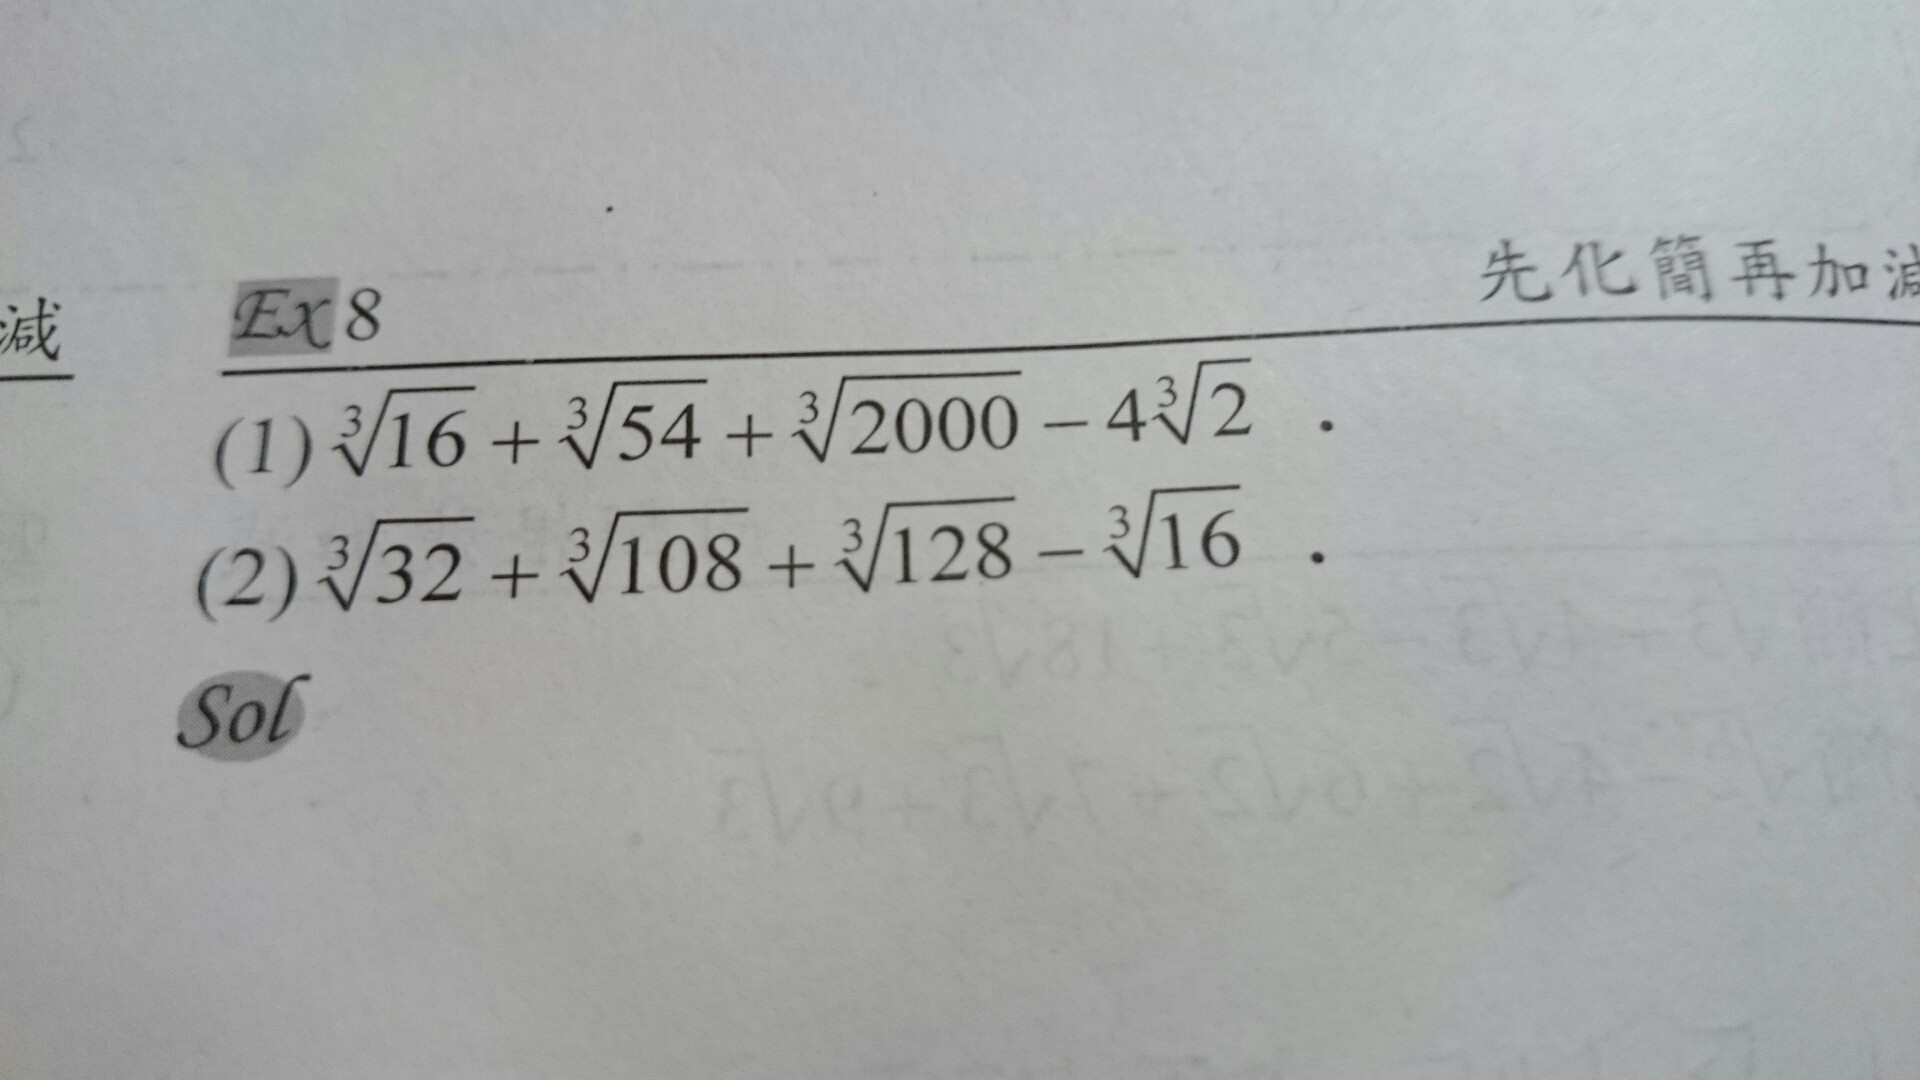 減
Ex 8
先化簡再加減
(1) ∛16 + ∛54 + ∛2000 − 4∛2 .
(2) ∛32 + ∛108 + ∛128 − ∛16 .
Sol